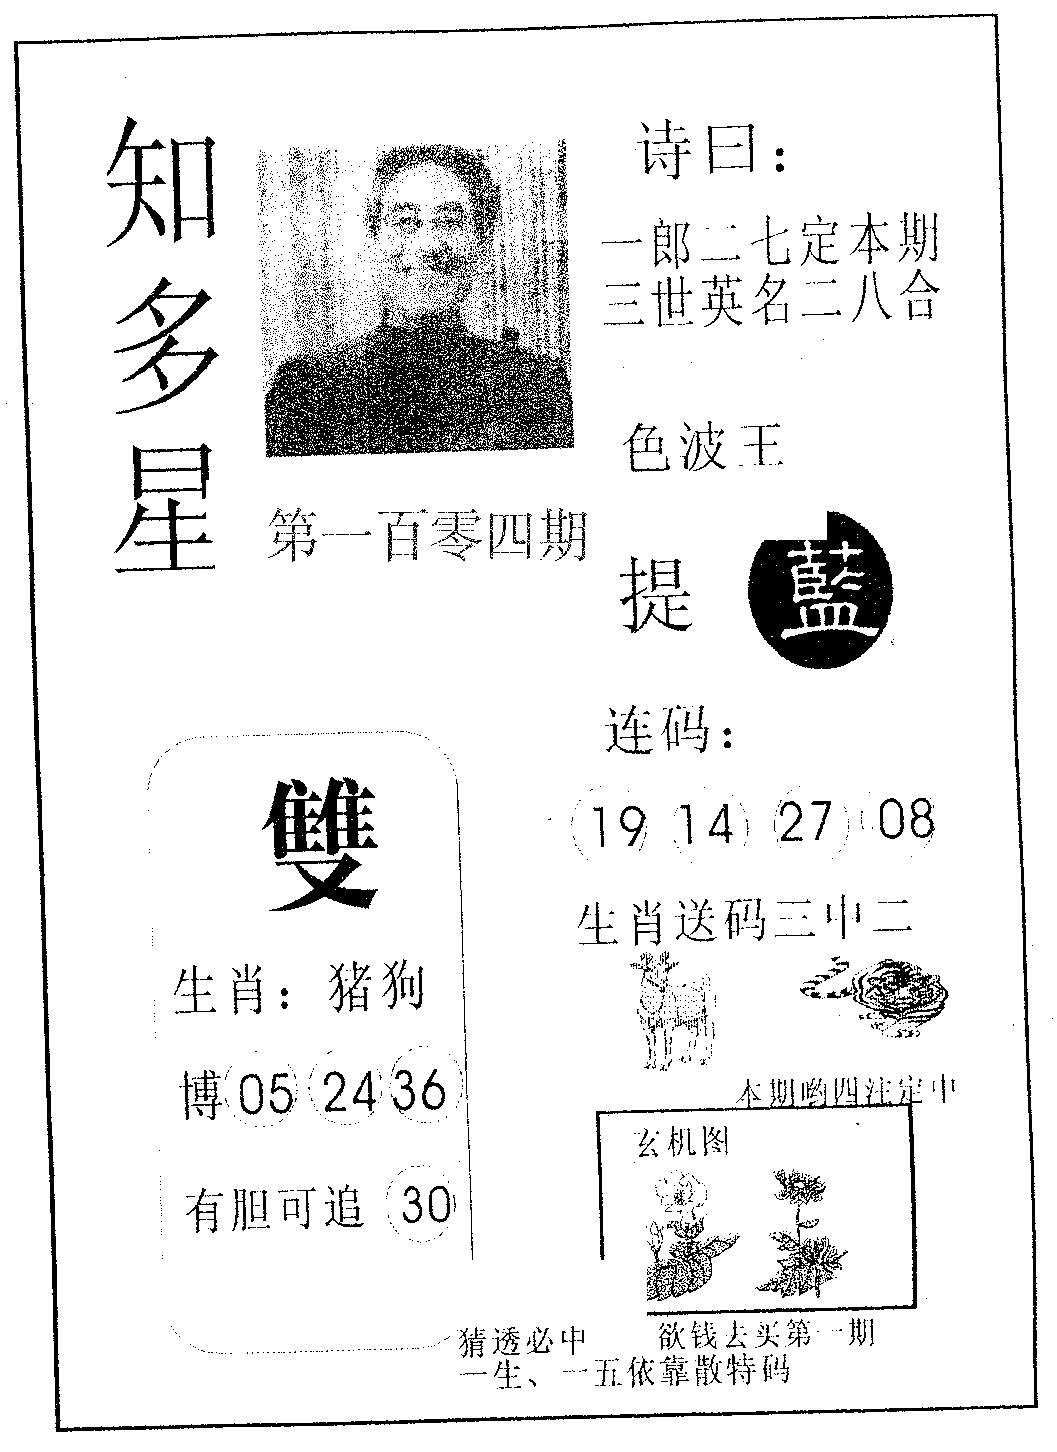 知多星
第一百零四期
诗曰：
一郎二七定本期
三世英名二八合
色波王
提 藍
连码：
19 14 27 08
生肖送码三中二
本期哟四注定中
雙
生肖：猪狗
博 05 24 36
有胆可追 30
玄机图
猜透必中
欲钱去买第一期
一生、一五依靠散特码